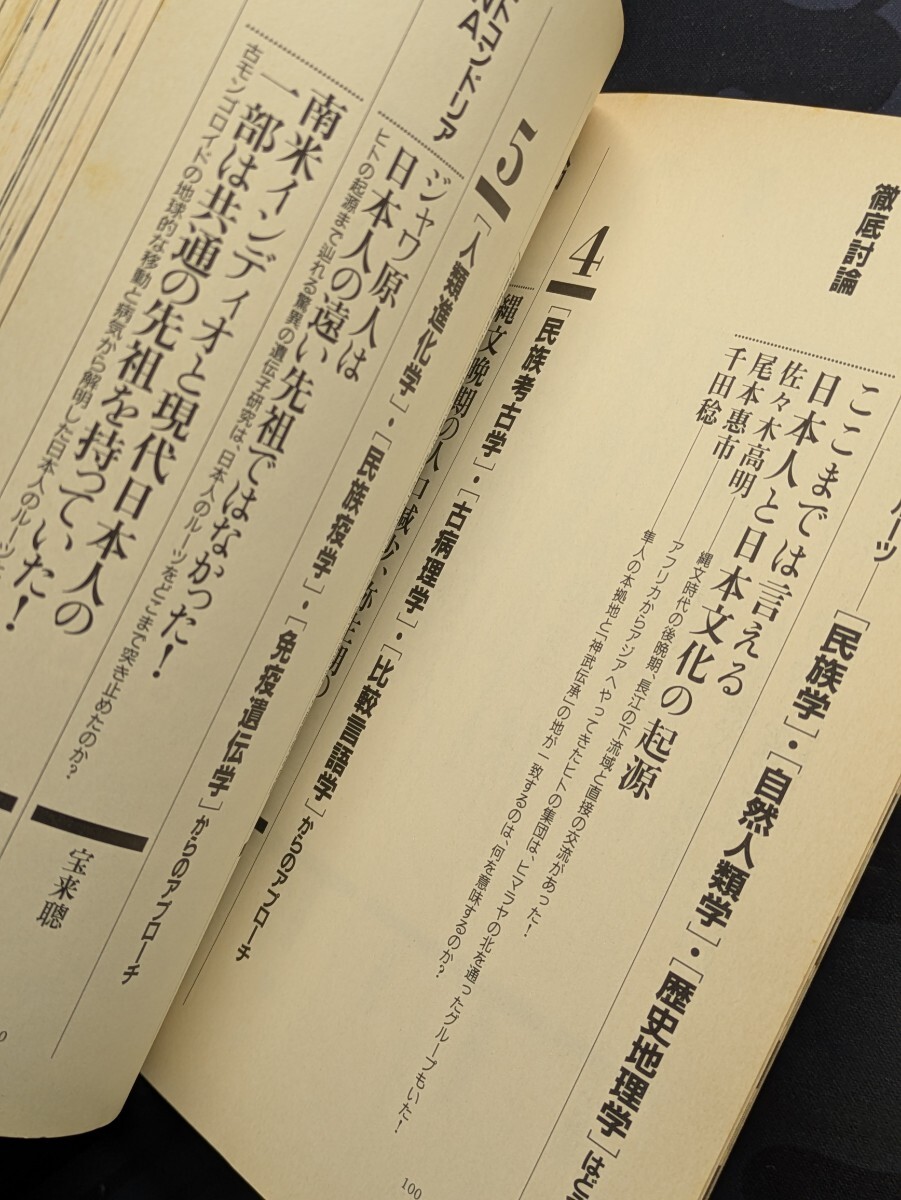 ルーツ──[民族学]・[自然人類学]・[歴史地理学]はど
徹底討論
ここまでは言える
日本人と日本文化の起源
佐々木高明
尾本惠市
千田稔
縄文時代の後晩期、長江の下流域と直接の交流があった!
アフリカからアジアへやってきたヒトの集団は、ヒマラヤの北を通ったグループもいた!
隼人の本拠地と「神武伝承」の地が一致するのは、何を意味するのか?
100
4
[民族考古学]・[古病理学]・[比較言語学]からのアプローチ
縄文晩期の人口減少、弥生期の
5
[人類進化学]・[民族疫学]・[免疫遺伝学]からのアプローチ
ジャワ原人は
日本人の遠い先祖ではなかった!
ヒトの起源まで辿れる驚異の遺伝子研究は、日本人のルーツをどこまで突き止めたのか?
トコンドリア
NA
宝来聰
南米インディオと現代日本人の
一部は共通の先祖を持っていた!
古モンゴロイドの地球的な移動と病気から解明した日本人のルーツ